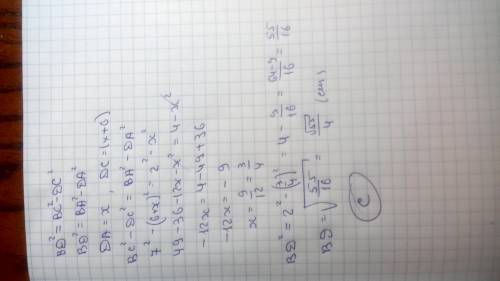 BD² = BC² - DC²
BD² = BA² - DA²
DA = x, DC = (x+6)
BC² - DC² = BA² - DA²
7² - (6+x)² = 2² - x²
49 - 36 - 12x - x² = 4 - x²
-12x = 4 - 49 + 36
-12x = -9
x = 9/12 = 3/4
BD² = 2² - (3/4)² = 4 - 9/16 = (64-9)/16 = 55/16
BD = √(55/16) = √55/4 (cm)
C